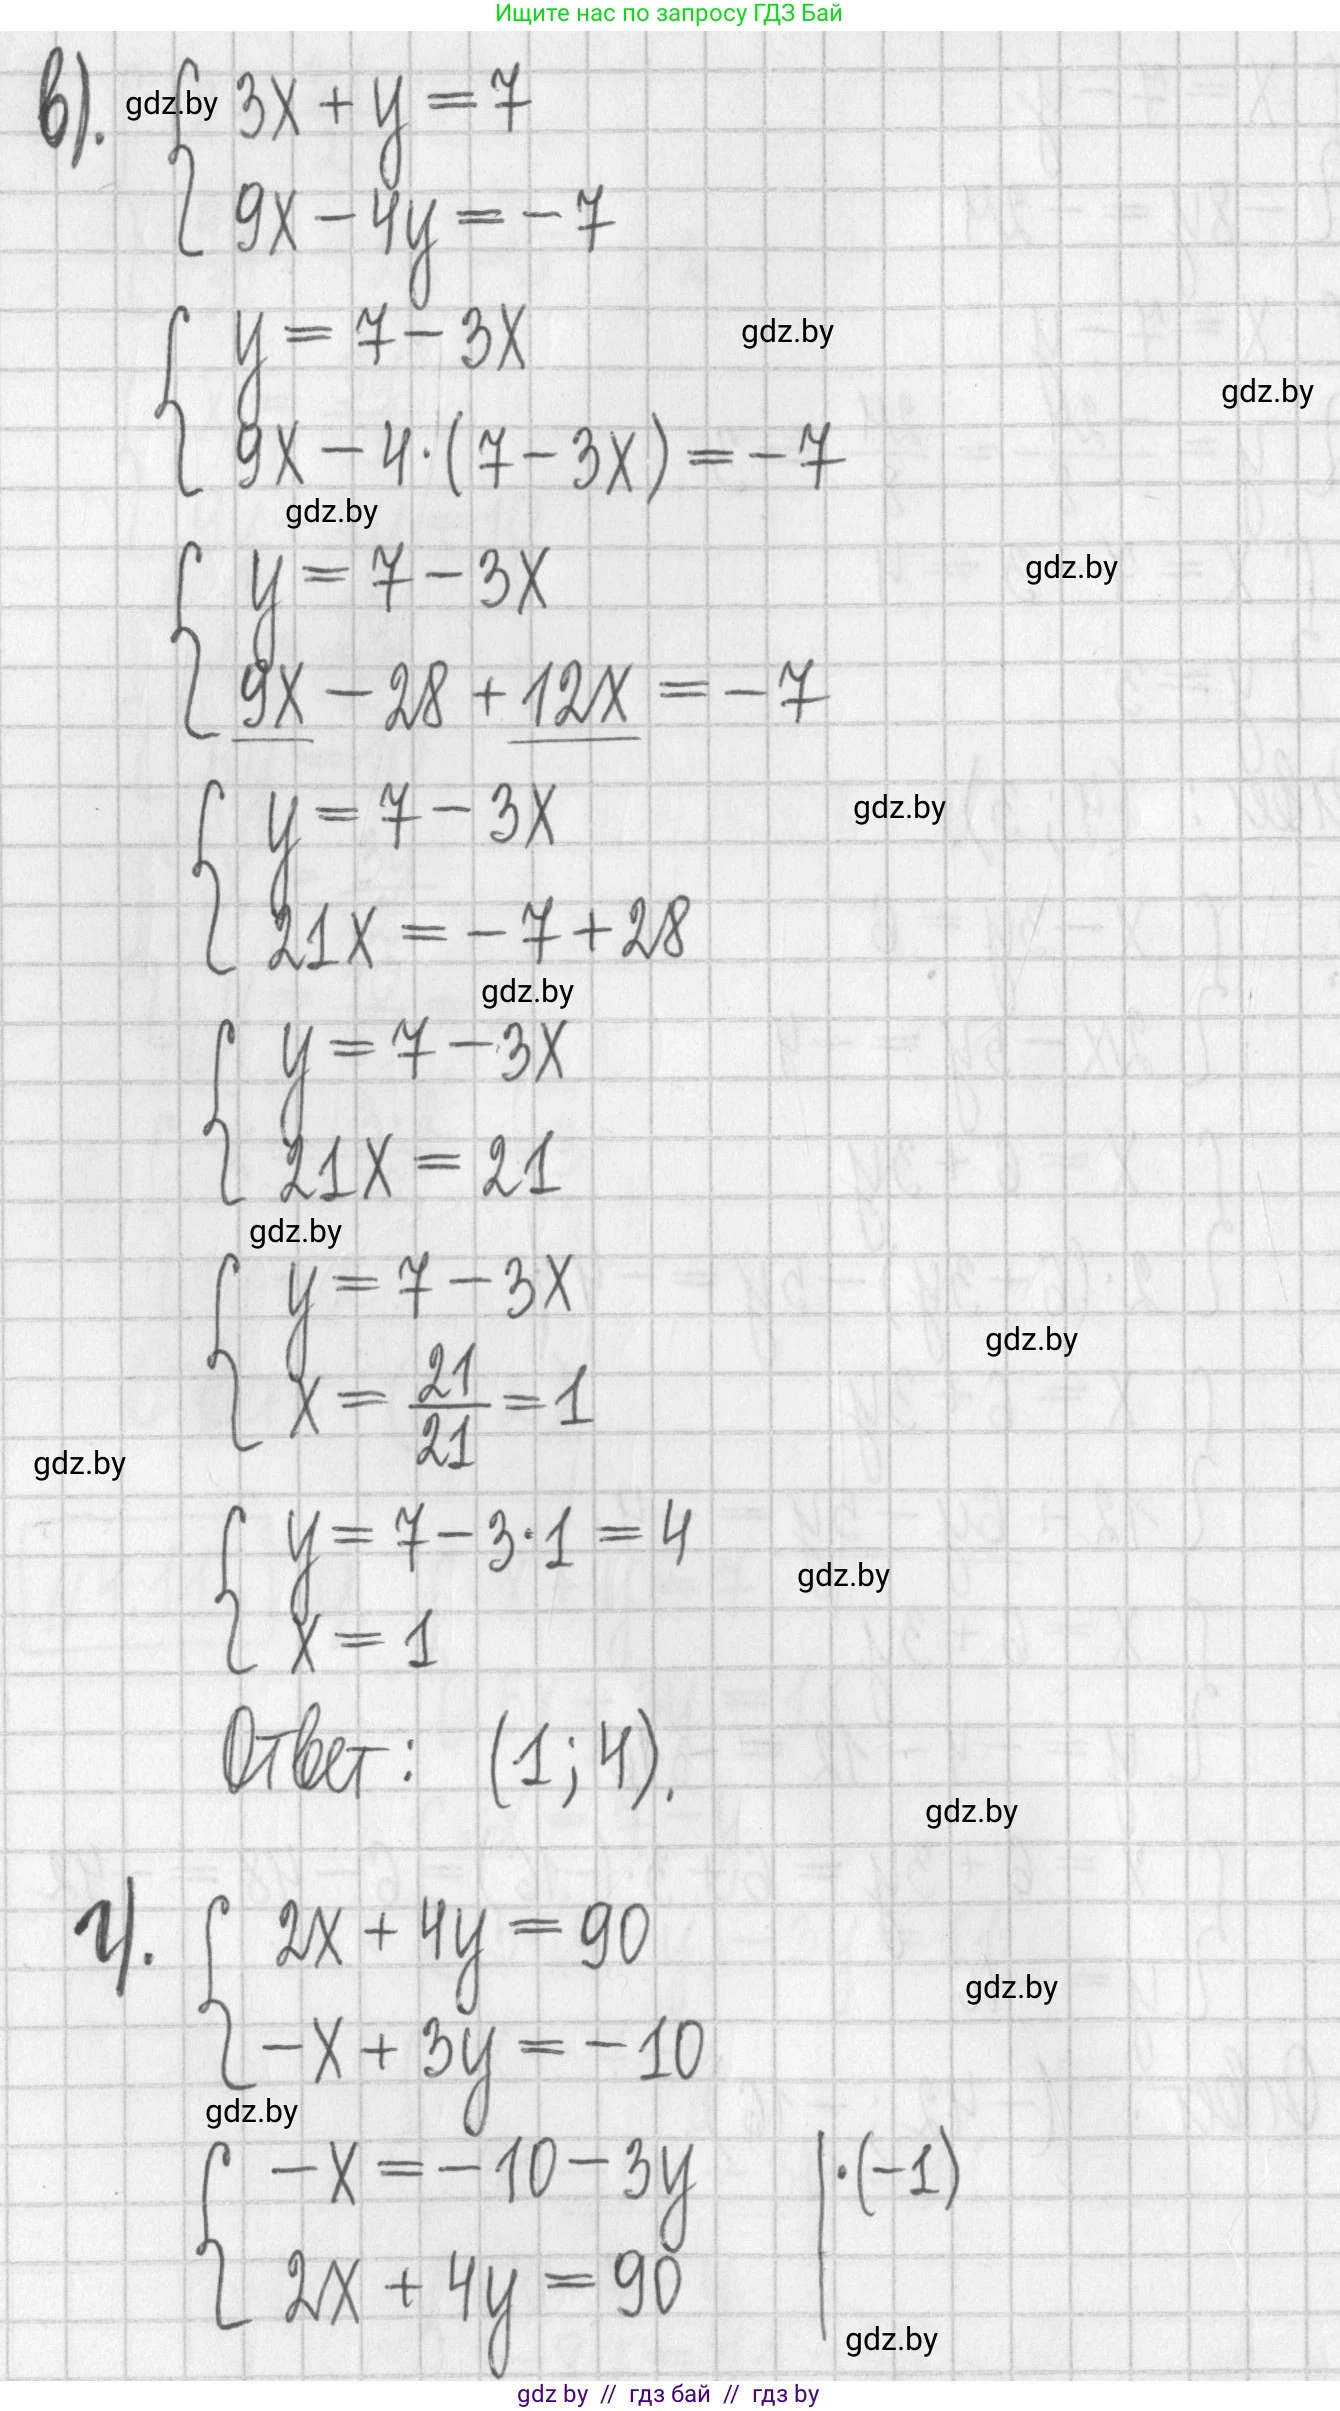 Ищите нас по запросу ГДЗ Бай
в). { 3x + y = 7
9x - 4y = -7
gdz.by
{ y = 7 - 3x
9x - 4·(7 - 3x) = -7
gdz.by
gdz.by
gdz.by
{ y = 7 - 3x
9x - 28 + 12x = -7
gdz.by
{ y = 7 - 3x
21x = -7 + 28
gdz.by
gdz.by
{ y = 7 - 3x
21x = 21
gdz.by
{ y = 7 - 3x
x = 21/21 = 1
gdz.by
gdz.by
{ y = 7 - 3·1 = 4
x = 1
gdz.by
Ответ: (1; 4).
gdz.by
г). { 2x + 4y = 90
-x + 3y = -10
gdz.by
gdz.by
{ -x = -10 - 3y | ·(-1)
2x + 4y = 90
gdz.by
gdz by // гдз бай // гдз by